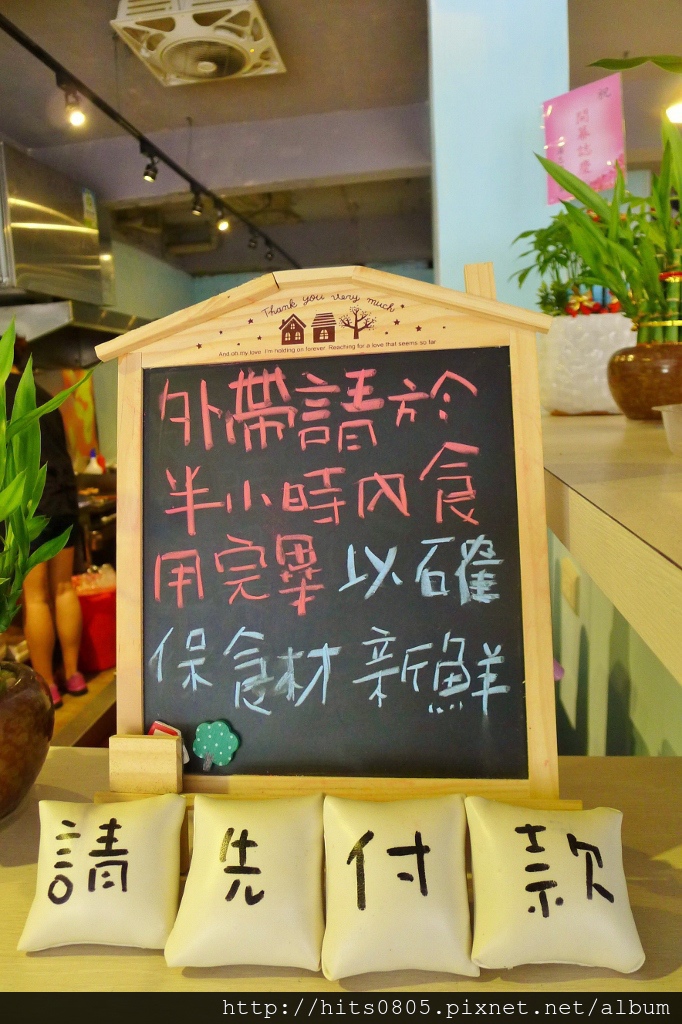 祝
開幕誌慶
Thank you very much
And oh my love. I'm holding us forever. Reaching for a love that seems so far
外帶請於
半小時內食
用完畢以確
保食材新鮮
請先付款
http://hits0805.pixnet.net/album